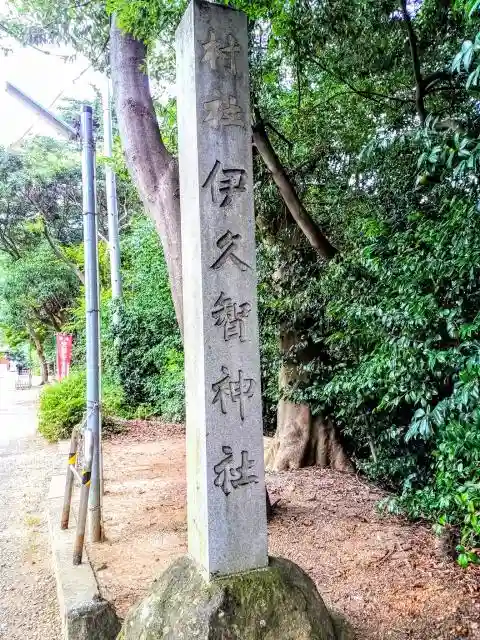 村社 伊久智神社